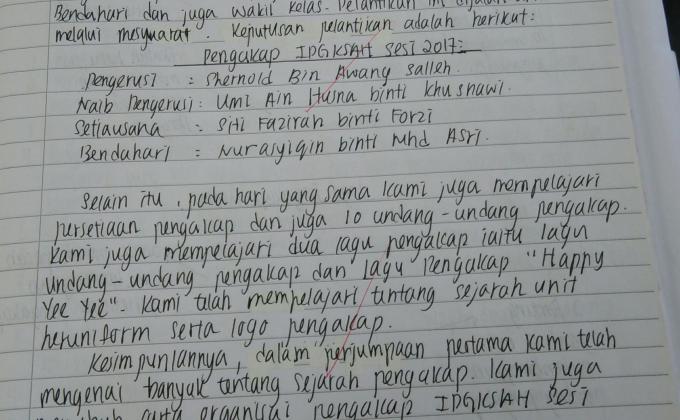 Bendahari dan juga wakil kelas. Pelantikan ini dijalan
melalui mesyuarat. Keputusan pelantikan adalah berikut:
Pengakap IPGKSAH Sesi 2017:
Pengerusi : Shernold Bin Awang Salleh.
Naib Pengerusi : Umi Ain Husna binti Khusnawi.
Setiausaha : Siti Fazirah binti Forzi
Bendahari : Nurasyiqin binti Mhd Asri.
Selain itu, pada hari yang sama kami juga mempelajari
persetiaan pengakap dan juga 10 undang-undang pengakap.
Kami juga mempelajari dua lagu pengakap iaitu lagu
undang-undang pengakap dan lagu pengakap "Happy
Yee Yee". Kami telah mempelajari tentang sejarah unit
beruniform serta logo pengakap.
Kesimpunlannya, dalam perjumpaan pertama kami telah
mengenai banyak tentang sejarah pengakap. Kami juga
carta organisai pengakap IPGKSAH Sesi